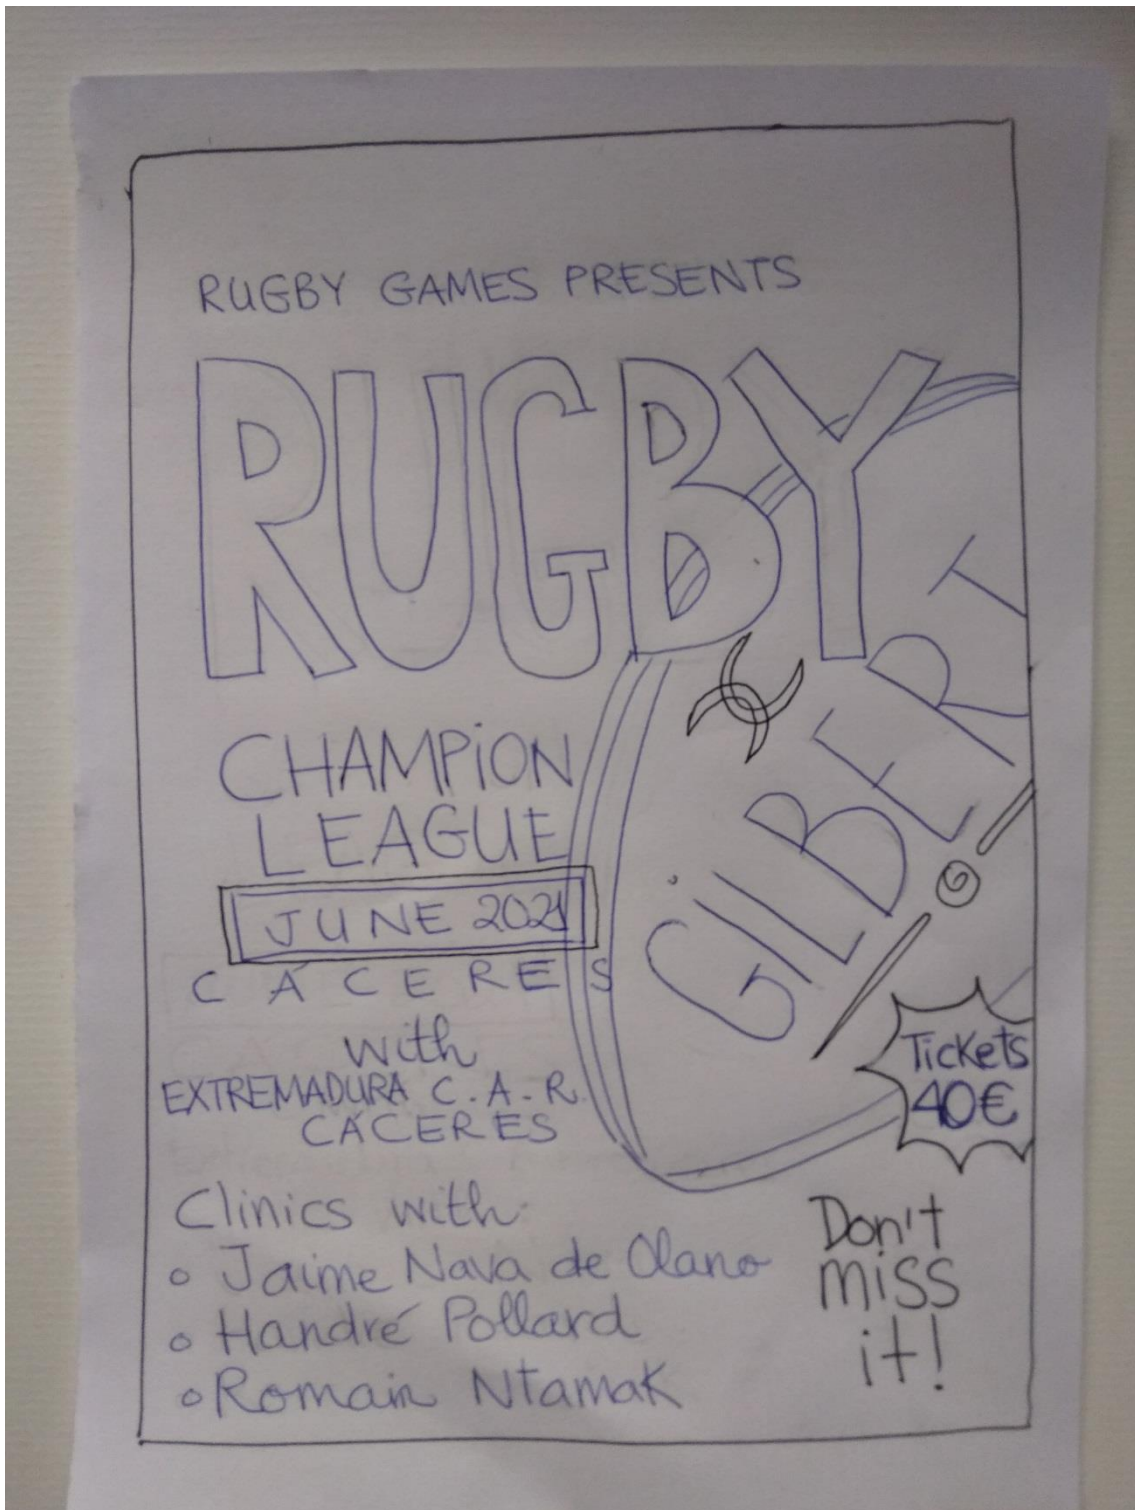 RUGBY GAMES PRESENTS
RUGBY
CHAMPiON
LEAGUE
JUNE 2021
CÁCERES
with
EXTREMADURA C.A.R.
CÁCERES
GILBERT
Tickets
40€
Clinics with
Jaime Nava de Olano
Handré Pollard
Romain Ntamak
Don't
miss
it!